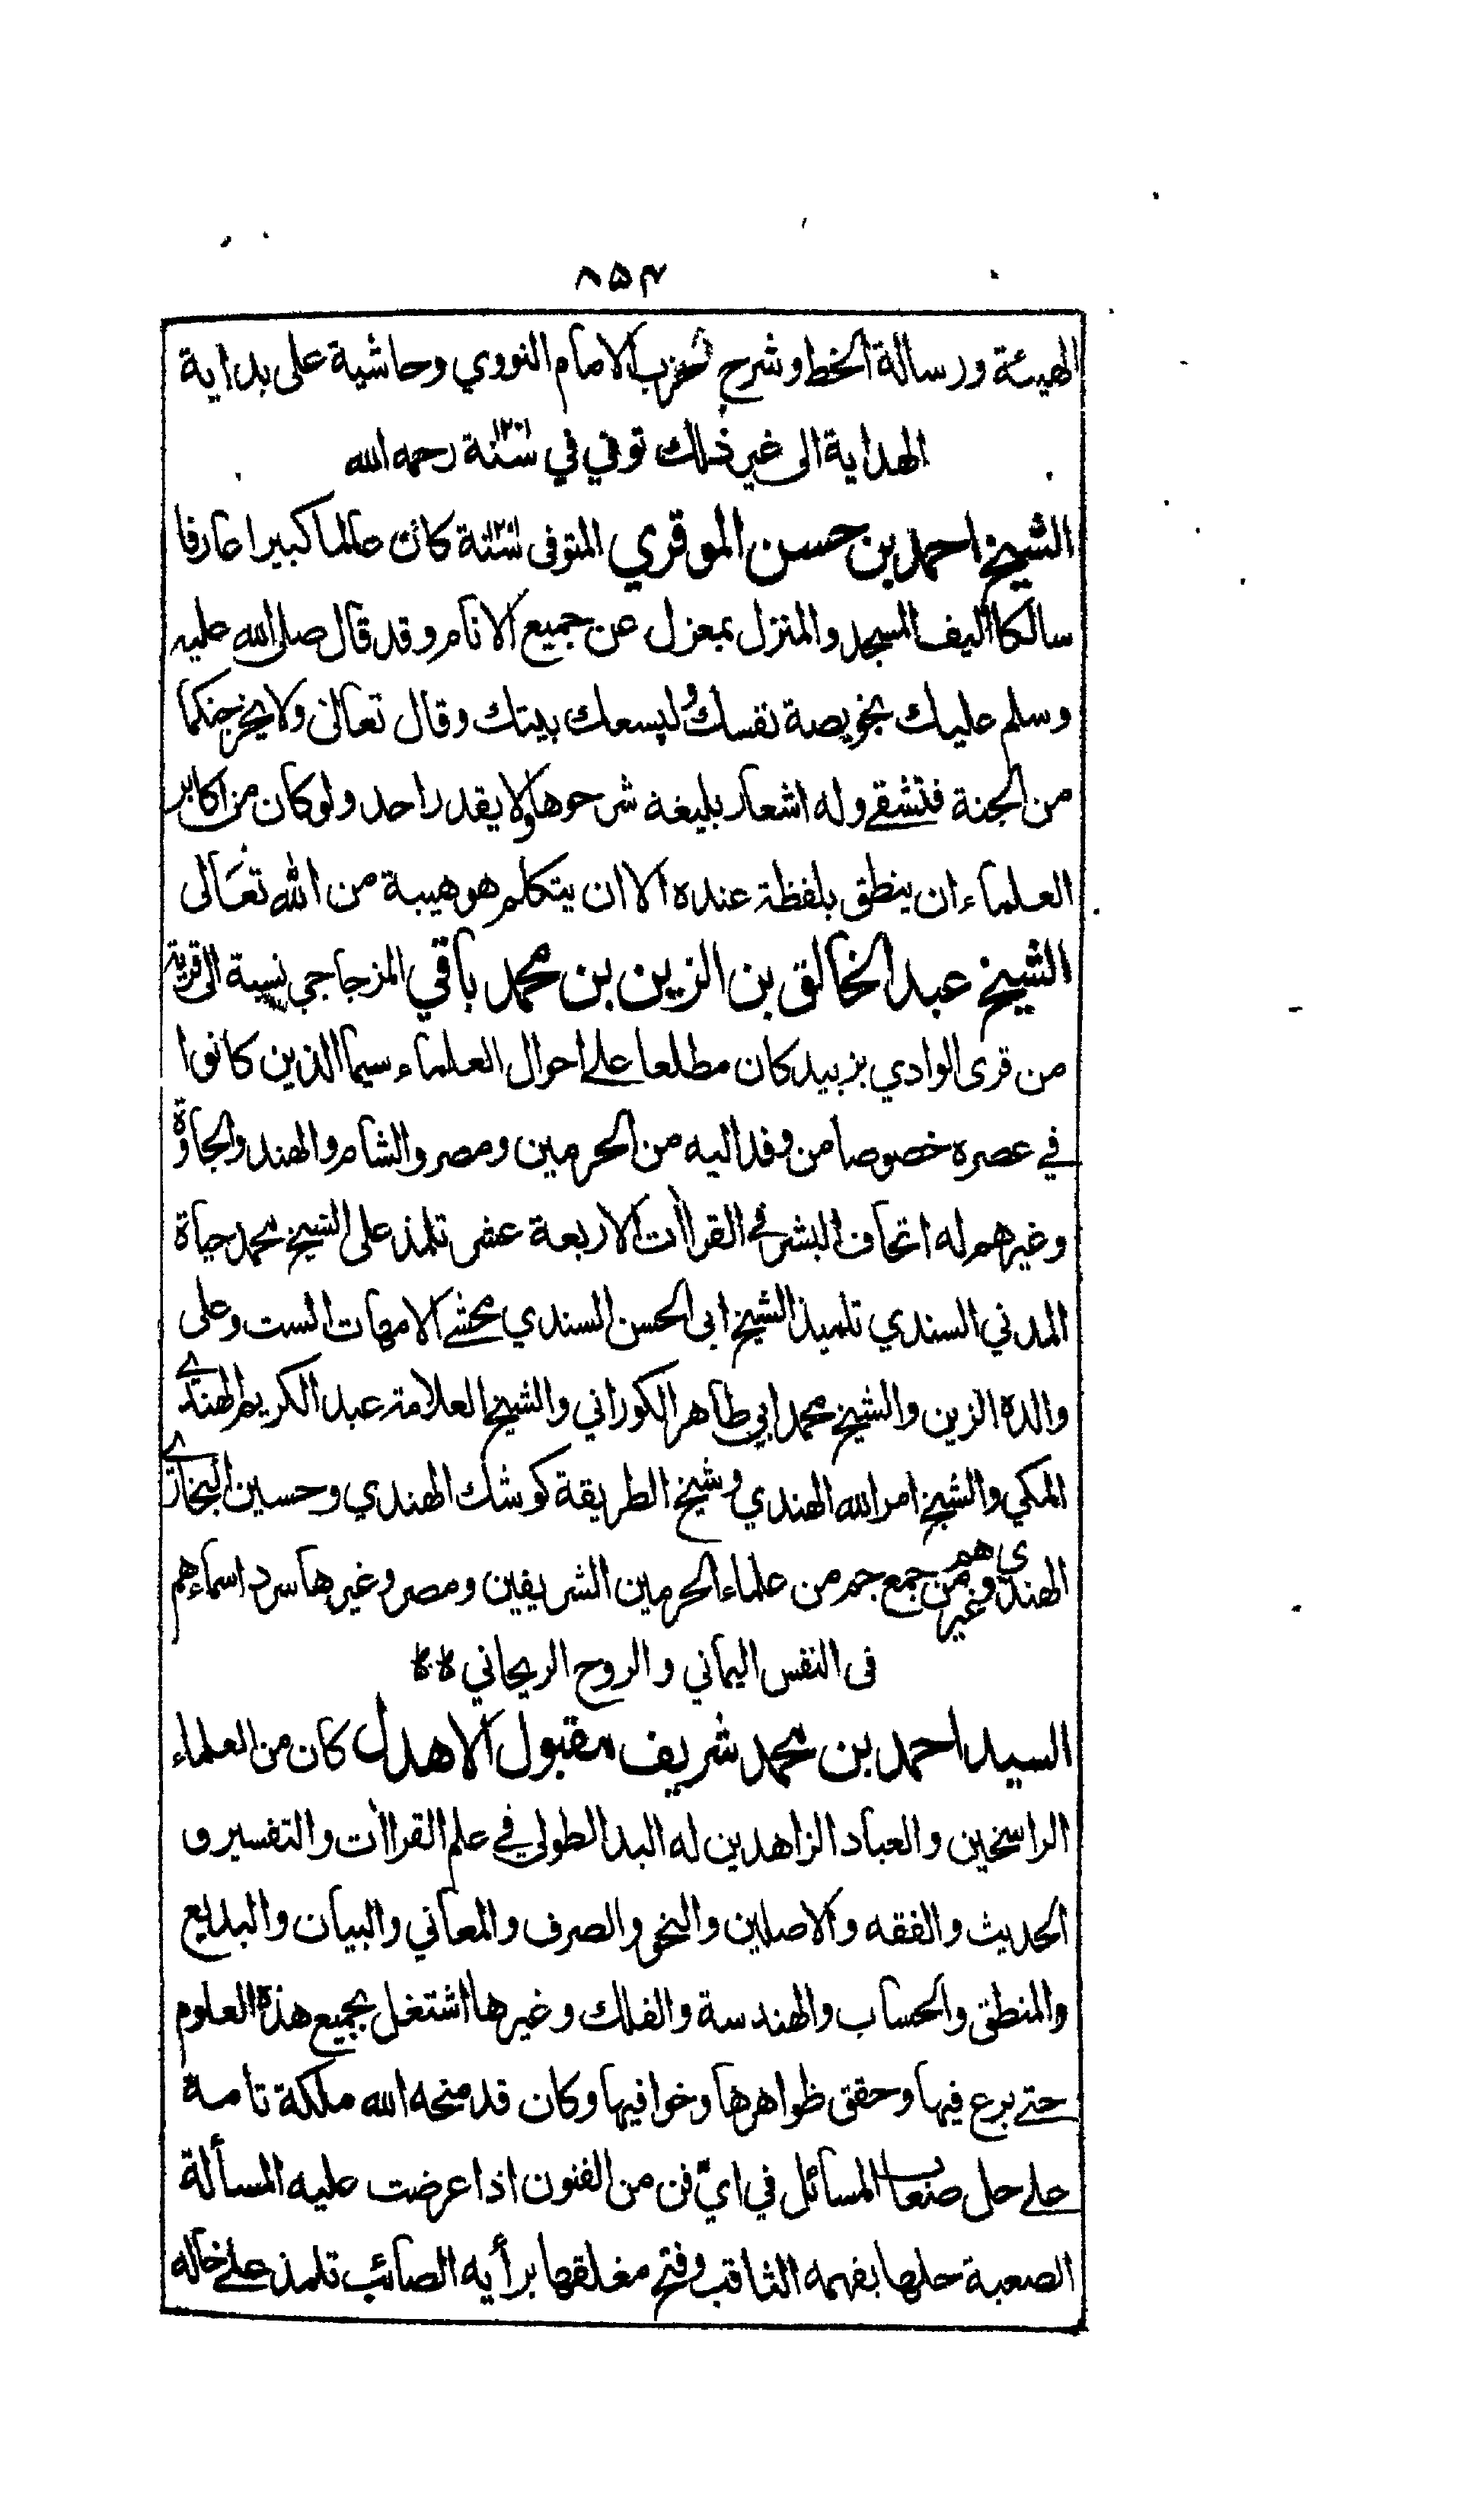 ٨٥٣
الهيئة ورسالة الخط وشرح حزب الامام النووي وحاشية على بداية
الهداية الى غير ذلك توفي في سنة رحمه الله
الشيخ احمد بن حسن الموقري المتوفى سنة كان عالما كبيرا عارفا
سالكا اليف المسجد والمنزل بمعزل عن جميع الانام وقد قال صلى الله عليه
وسلم عليك بخويصة نفسك وليسعك بيتك وقال تعالى ولا يخرجنكما
من الجنة فتشقى وله اشعار بليغة شرحوها ولا يقدر احد ولو كان من اكابر
العلماء ان ينطق بلفظة عنده الا ان يتكلم هو هيبة من الله تعالى
الشيخ عبد الخالق بن الزين بن محمد باقي المزجاجي نسبة الى قرية
من قرى الوادي بزبيد كان مطلعا على احوال العلماء سيما الذين كانوا
في عصره خصوصا من وفد اليه من الحرمين ومصر والشام والهند والجاوة
وغيرهم له اتحاف البشر في القراآت الاربعة عشر تلمذ على الشيخ محمد حياة
المدني السندي تلميذ الشيخ ابى الحسن السندي محشى الامهات الست وعلى
والده الزين والشيخ محمد ابي طاهر الكوراني والشيخ العلامة عبد الكريم الهندي
المكي والشيخ امر الله الهندي وشيخ الطريقة كوشك الهندي وحسين البخاري
الهندي وغيرهم من جمع جم من علماء الحرمين الشريفين ومصر وغيرها سرد اسماءهم
فى النفس اليماني والروح الريحاني
السيد احمد بن محمد شريف مقبول الاهدل كان من العلماء
الراسخين والعباد الزاهدين له اليد الطولى في علم القراآت والتفسير و
الحديث والفقه والاصلين والنحو والصرف والمعاني والبيان والبديع
والمنطق والحساب والهندسة والفلك وغيرها اشتغل بجميع هذه العلوم
حتى برع فيها وحقق ظواهرها وخوافيها وكان قد منحه الله ملكة تامة
على حل صعاب المسائل في ايّ فن من الفنون اذا عرضت عليه المسألة
الصعبة حلها بفهمه الثاقب وفتح مغلقها برأيه الصائب تلمذ على خاله